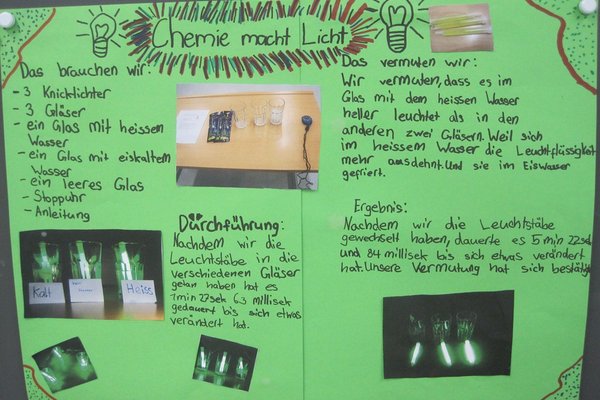 Chemie macht Licht
Das brauchen wir:
- 3 Knicklichter
- 3 Gläser
- ein Glas mit heissem
Wasser
- ein Glas mit eiskaltem
Wasser
- ein leeres Glas
- Stoppuhr
- Anleitung
Kalt
Heiss
Dürchführung:
Nachdem wir die
Leuchtstäbe in die
verschiedenen Gläser
getan haben hat es
1min 27sek 63 millisek
gedauert bis sich etwas
verändert hat.
Das vermuten wir:
Wir vermuten, dass es im
Glas mit dem heissen Wasser
heller leuchtet als in den
anderen zwei Gläsern. Weil sich
im heissem Wasser die Leuchtflüssigkeit
mehr ausdehnt. Und sie im Eiswasser
gefriert.
Ergebnis:
Nachdem wir die Leuchtstäbe
gewechselt haben, dauerte es 5 min 22sek
und 84 millisek bis sich etwas verändert
hat. Unsere Vermutung hat sich bestätigt